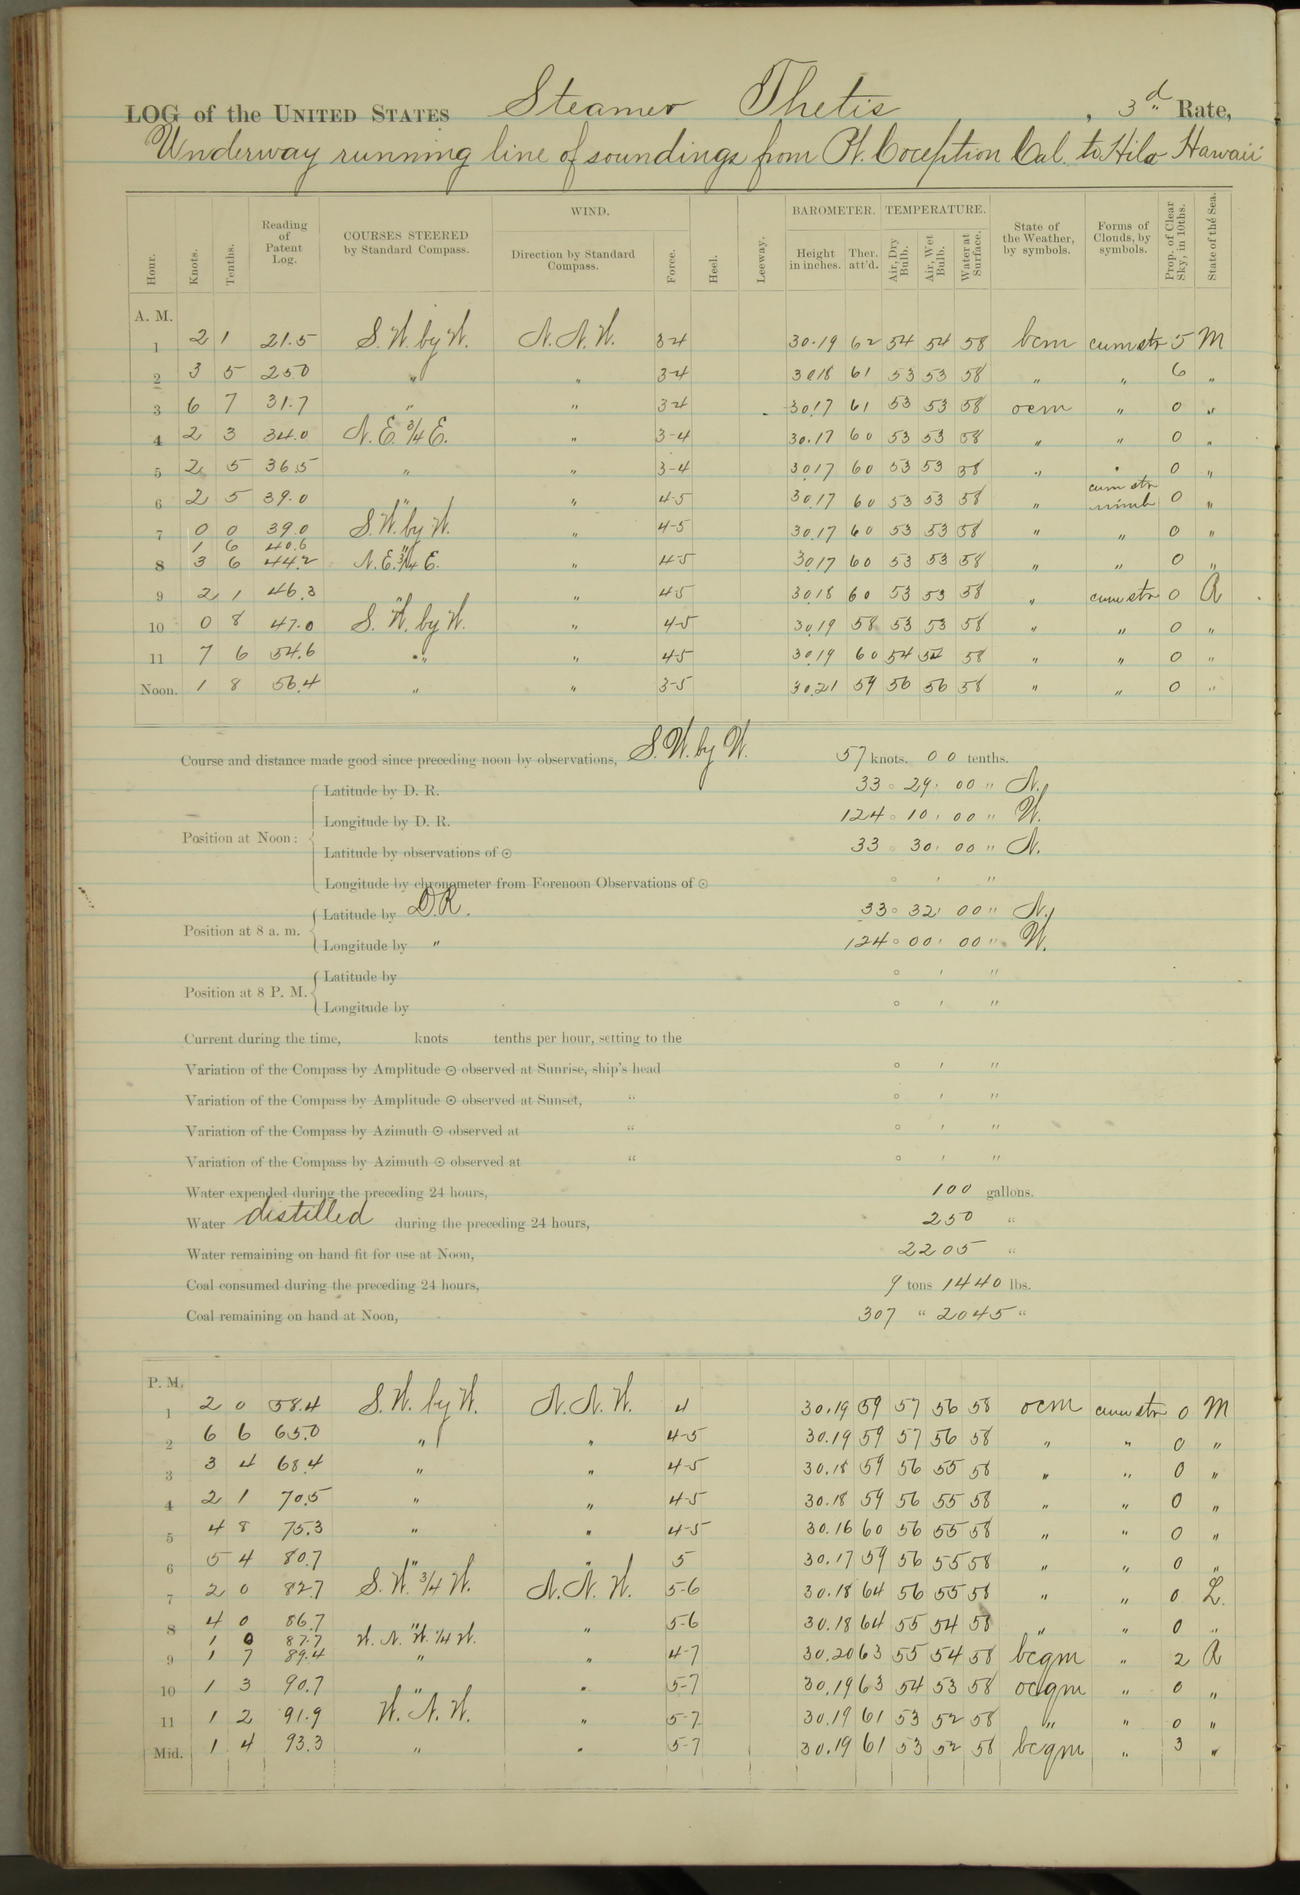 LOG of the UNITED STATES Steamer Thetis, 3d Rate,
Underway running line of soundings from Pt. Coception Cal. to Hilo Hawaii
Hour. Knots. Tenths. Reading of Patent Log. COURSES STEERED by Standard Compass. WIND. Direction by Standard Compass. Force. Heel. Leeway. BAROMETER. Height in inches. Ther. att'd. TEMPERATURE. Air, Dry Bulb. Air, Wet Bulb. Water at Surface. State of the Weather, by symbols. Forms of Clouds, by symbols. Prop. of Clear Sky, in 10ths. State of the Sea.
A. M.
1 2 1 21.5 S. W. by W. N. N. W. 3-4 30.19 62 54 54 58 bcm cum str 5 M
2 3 5 25.0 " " 3-4 30.18 61 53 53 58 " " 6 "
3 6 7 31.7 " " 3-4 30.17 61 53 53 58 ocm " 0 "
4 2 3 34.0 N. E. 3/4 E. " 3-4 30.17 60 53 53 58 " " 0 "
5 2 5 36.5 " " 3-4 30.17 60 53 53 58 " " 0 "
6 2 5 39.0 " " 4-5 30.17 60 53 53 58 " cum str nimb 0 "
7 0 0 39.0 S. W. by W. " 4-5 30.17 60 53 53 58 " " 0 "
1 6 40.6 "
8 3 6 44.2 N. E. 3/4 E. " 4-5 30.17 60 53 53 58 " " 0 "
9 2 1 46.3 " " 4-5 30.18 60 53 53 58 " cum str 0 R
10 0 8 47.0 S. W. by W. " 4-5 30.19 58 53 53 58 " " 0 "
11 7 6 54.6 " " 4-5 30.19 60 54 54 58 " " 0 "
Noon. 1 8 56.4 " " 3-5 30.21 59 56 56 58 " " 0 "
Course and distance made good since preceding noon by observations, S. W. by W. 57 knots. 00 tenths.
Latitude by D. R. 33 ° 29 ' 00 " N.
Longitude by D. R. 124 ° 10 ' 00 " W.
Position at Noon:
Latitude by observations of ☉ 33 ° 30 ' 00 " N.
Longitude by chronometer from Forenoon Observations of ☉ ° ' "
Latitude by D.R. 33 ° 32 ' 00 " N.
Position at 8 a. m.
Longitude by " 124 ° 00 ' 00 " W.
Latitude by ° ' "
Position at 8 P. M.
Longitude by ° ' "
Current during the time, knots tenths per hour, setting to the
Variation of the Compass by Amplitude ☉ observed at Sunrise, ship's head ° ' "
Variation of the Compass by Amplitude ☉ observed at Sunset, " ° ' "
Variation of the Compass by Azimuth ☉ observed at " ° ' "
Variation of the Compass by Azimuth ☉ observed at " ° ' "
Water expended during the preceding 24 hours, 100 gallons.
Water distilled during the preceding 24 hours, 250 "
Water remaining on hand fit for use at Noon, 2205 "
Coal consumed during the preceding 24 hours, 9 tons 1440 lbs.
Coal remaining on hand at Noon, 307 " 2045 "
P. M.
1 2 0 58.4 S. W. by W. N. N. W. 4 30.19 59 57 56 58 ocm cum str 0 M
2 6 6 65.0 " " 4-5 30.19 59 57 56 58 " " 0 "
3 3 4 68.4 " " 4-5 30.18 59 56 55 58 " " 0 "
4 2 1 70.5 " " 4-5 30.18 59 56 55 58 " " 0 "
5 4 8 75.3 " " 4-5 30.16 60 56 55 58 " " 0 "
6 5 4 80.7 " " 5 30.17 59 56 55 58 " " 0 "
7 2 0 82.7 S. W. 3/4 W. N. N. W. 5-6 30.18 64 56 55 58 " " 0 L.
8 4 0 86.7 " " 5-6 30.18 64 55 54 58 " " 0 "
1 0 87.7 W. N. W. 1/4 W.
9 1 7 89.4 " " 4-7 30.20 63 55 54 58 bcqm " 2 R
10 1 3 90.7 " " 5-7 30.19 63 54 53 58 ocqm " 0 "
11 1 2 91.9 W. N. W. " 5-7 30.19 61 53 52 58 " " 0 "
Mid. 1 4 93.3 " " 5-7 30.19 61 53 52 58 bcqm " 3 "